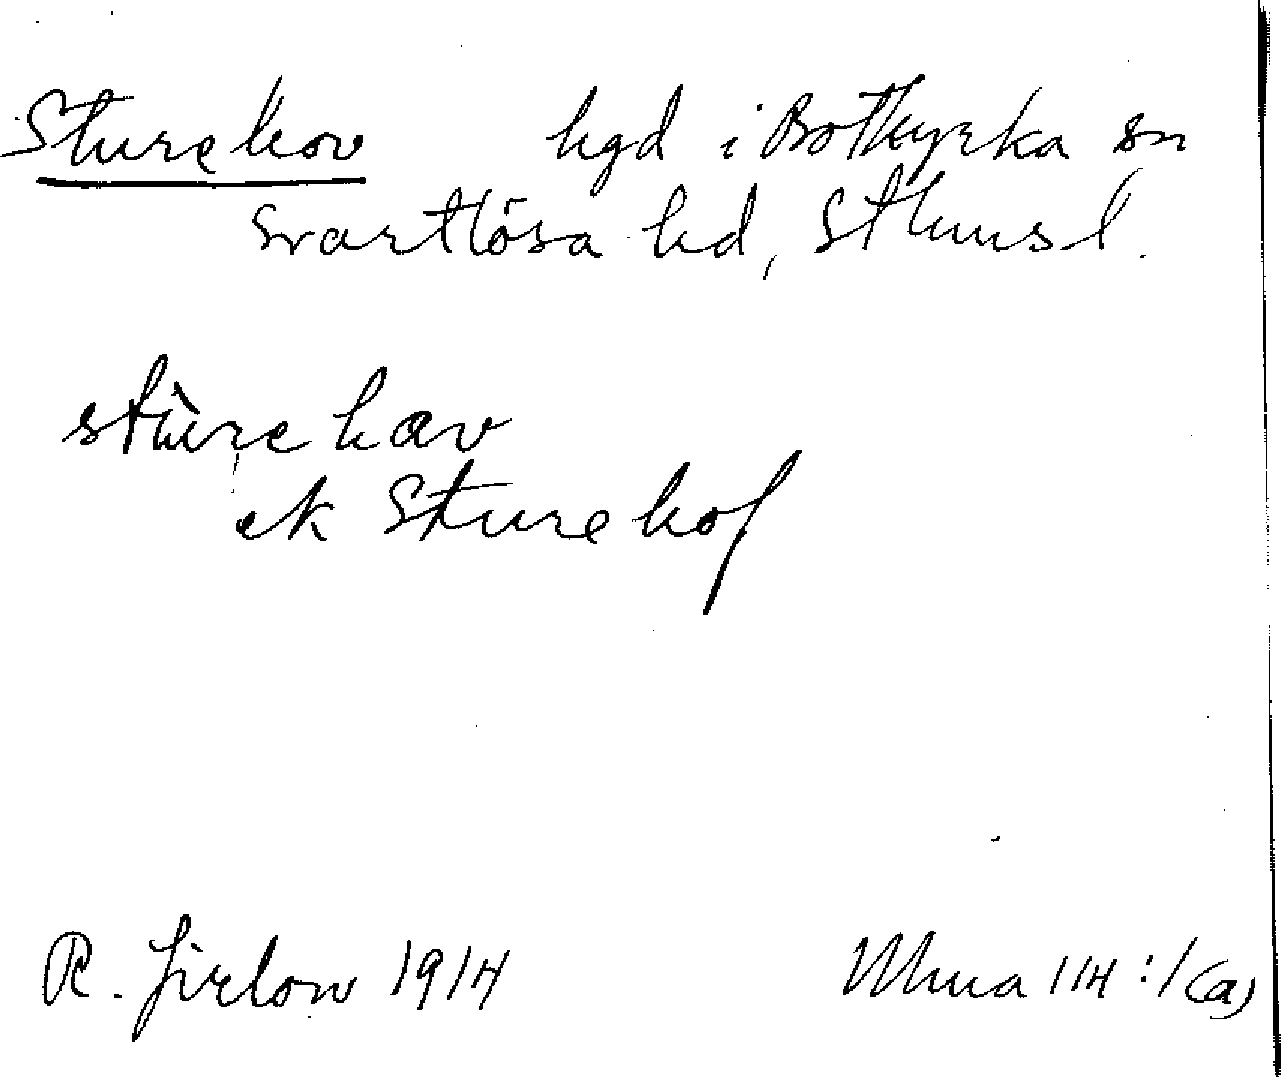 Sturehov hgd i Botkyrka sn
Svartlösa hd, Sthmsl.
stùre hav
ek Sturehof
R. Jirlow 1914
114:1(a)